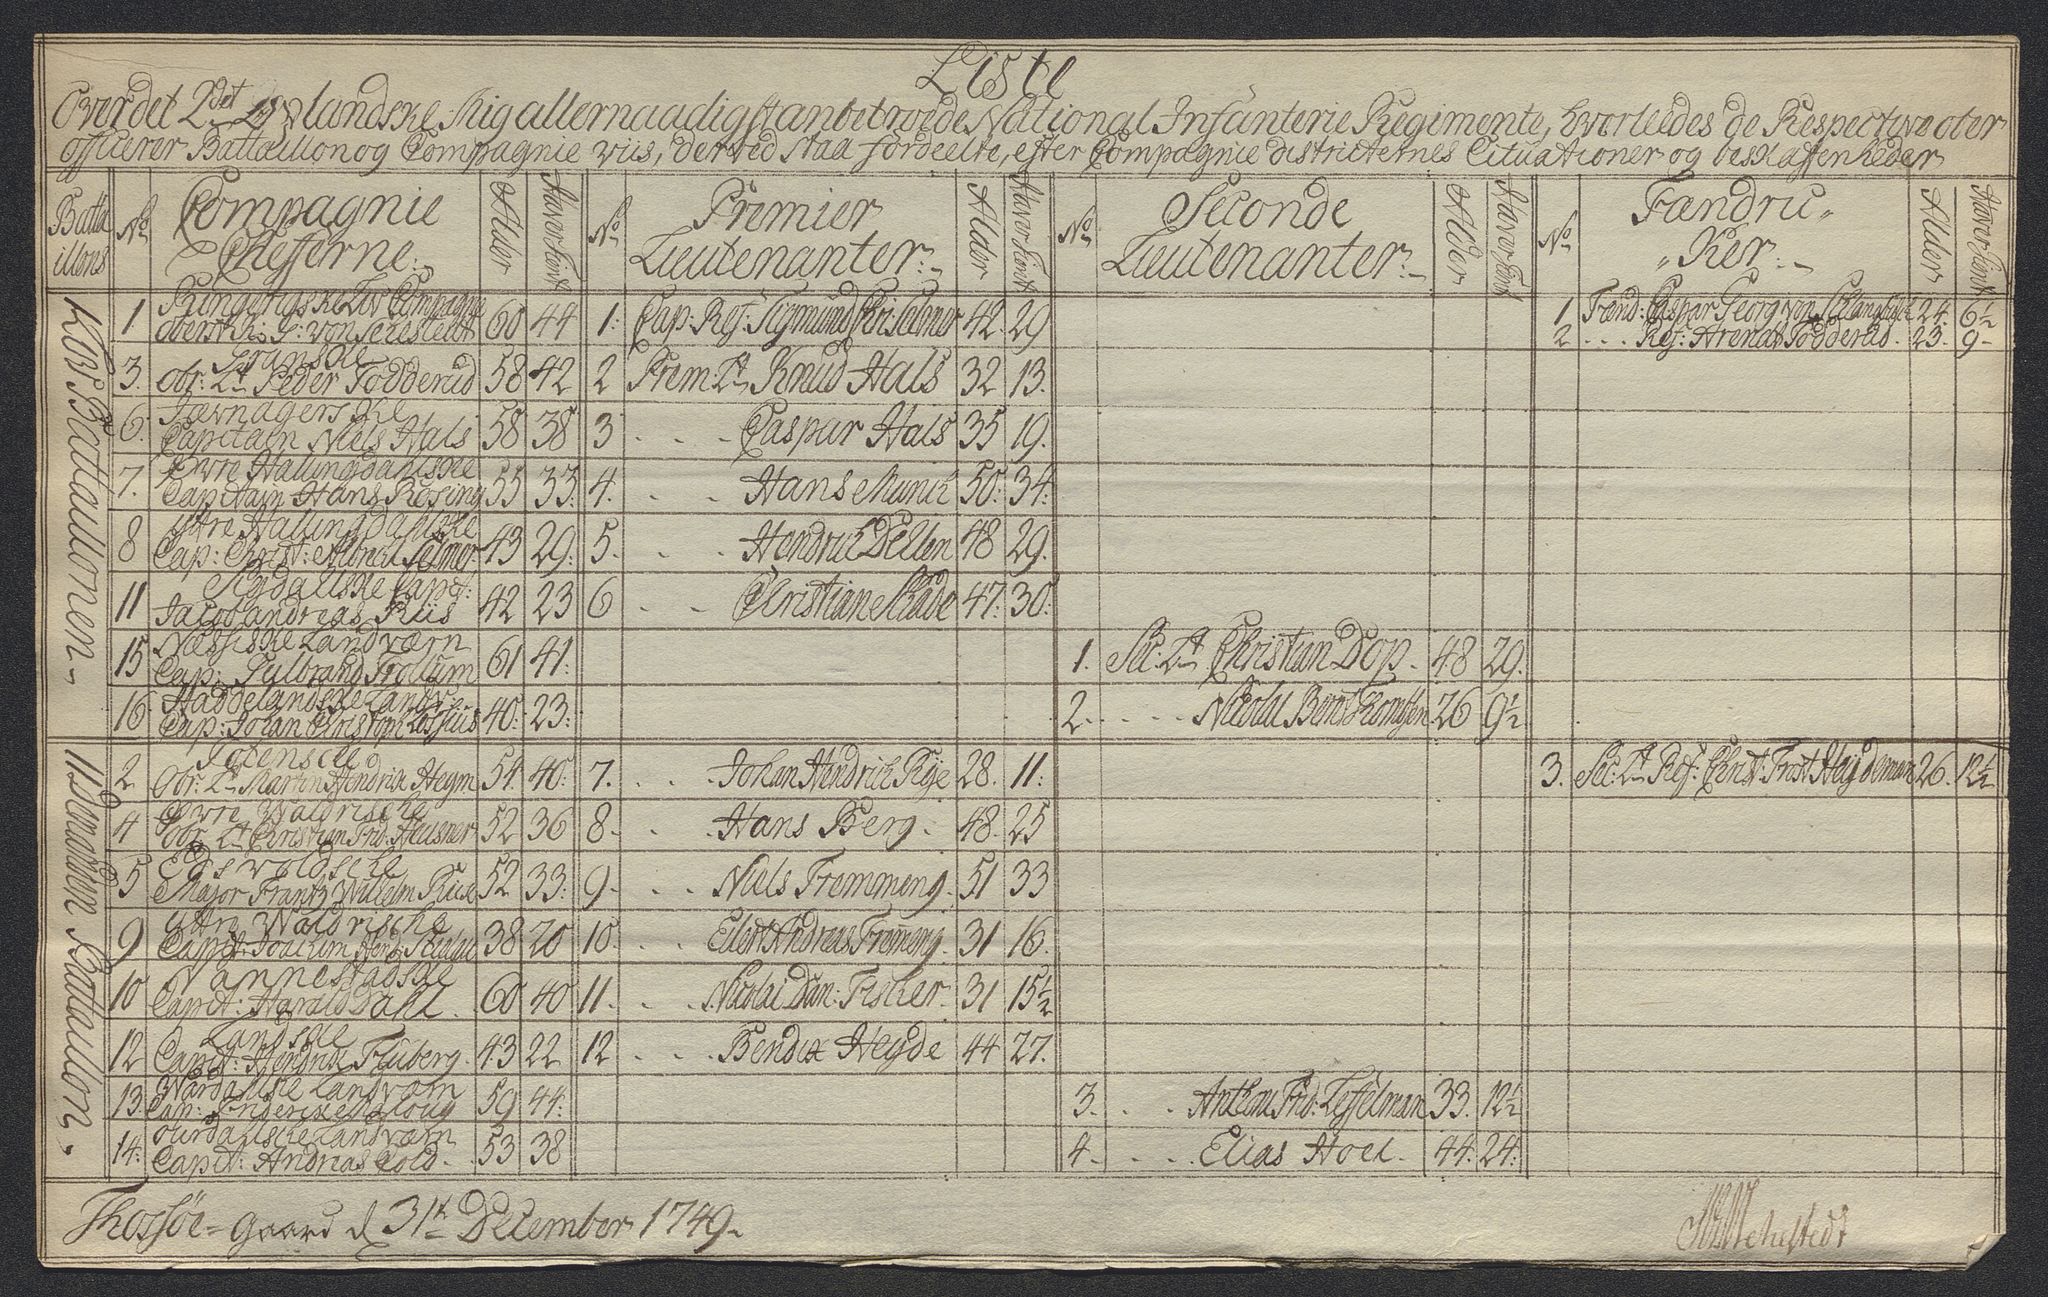 Liste
Over det 2det Oplandske Mig allernaadigst anbetroede National Infanterie Regimente, hvorledes de Respective ober
officerer Battaillion og Compagnie viis, derved staa fordeelte, efter Compagnie districternes Cituationer og beskaffenheder
Batta
illons
No
Compagnie
Chefferne:
Alder
Haver tient
No
Premier
Lieutenanter:
Alder
Haver tient
No
Seconde
Lieutenanter:
Alder
Haver tient
No
Fændric
Ker:
Alder
Haver tient
Liv Battaillonen
1 Ringerigske Liv Compagnie
oberst h: G: von Sehestedt 60 44 1: Cap: Ref: Sigmund Selmer 42 29
1 Fænd: Caspar Georg von 24: 6½
2 . . . Ref: Arendt Todderud. 23. 9
3. Granske
obr: Lt Peder Todderud 58 42 2 Prem: Lt Knud Hals 32 13.
6. Jævnagerske
Capitain Niels Hals 58 38 3 . . . Caspar Hals 35 19.
7. Øvre Hallingdahlske
Capitain Hans Rosing 55 33: 4. . . Hans Munch 50: 34:
8 Ytre Hallingdahlske
Cap: Christ: Selmer. 43 29: 5. . . Hendrich 48 29.
11 Sigdallske Capt:
Jacob andreas Riis 42 23 6 . . Christian 47. 30:
15 Næssiske Landværn
Cap: Gulbrand Trollum 61 41: 1. Sec: Lt Christian Dop. 48 29.
16 Haddelandske Landv:
Cap: Johan Christoph Lossius 40: 23: 2. . . . . Nicolai Bernt 26 9½
Donaillere Battaillon
2 Totenske
Obr: Lt Martin Hendrix Hegm 54. 40: 7. . . Johan Hendrich Rye 28. 11:
3. Sec: Lt Ref: Christ: Frost Heydeman 26. 12½
4 Øvre Waldriske
obr: Lt Christian Frid: Heusner 52 36 8. . . Hans Berg. 48. 25
5 Edsvoldske
Major Frantz Wilhelm 52 33: 9. . . Niels Fremmeng. 51 33
9 Ytre Waldriske
Capit: Joachim 38 20 10. . . Eilert Andreas Fremeng. 31 16.
10 Vannestadske
Capit: Harald Dahl. 60 40 11. . . Nicolai Dan: Fischer. 31 15½
12 Landske
Capit: Hendrix Fluberg. 43 22 12 . . . Bendix Heyde 44 27.
13. Wardahlske Landværn
Cap: Friderix 59 44: 3. . . Anthoni Frid: Lesselman 33. 12½
14: Hurdahlske Landværn
Capit: Andreas Cold. 53 38 4. . . . Elias Hoel. 44: 24:
Thossøe-gaard d 31te December 1749.
Sehestedt